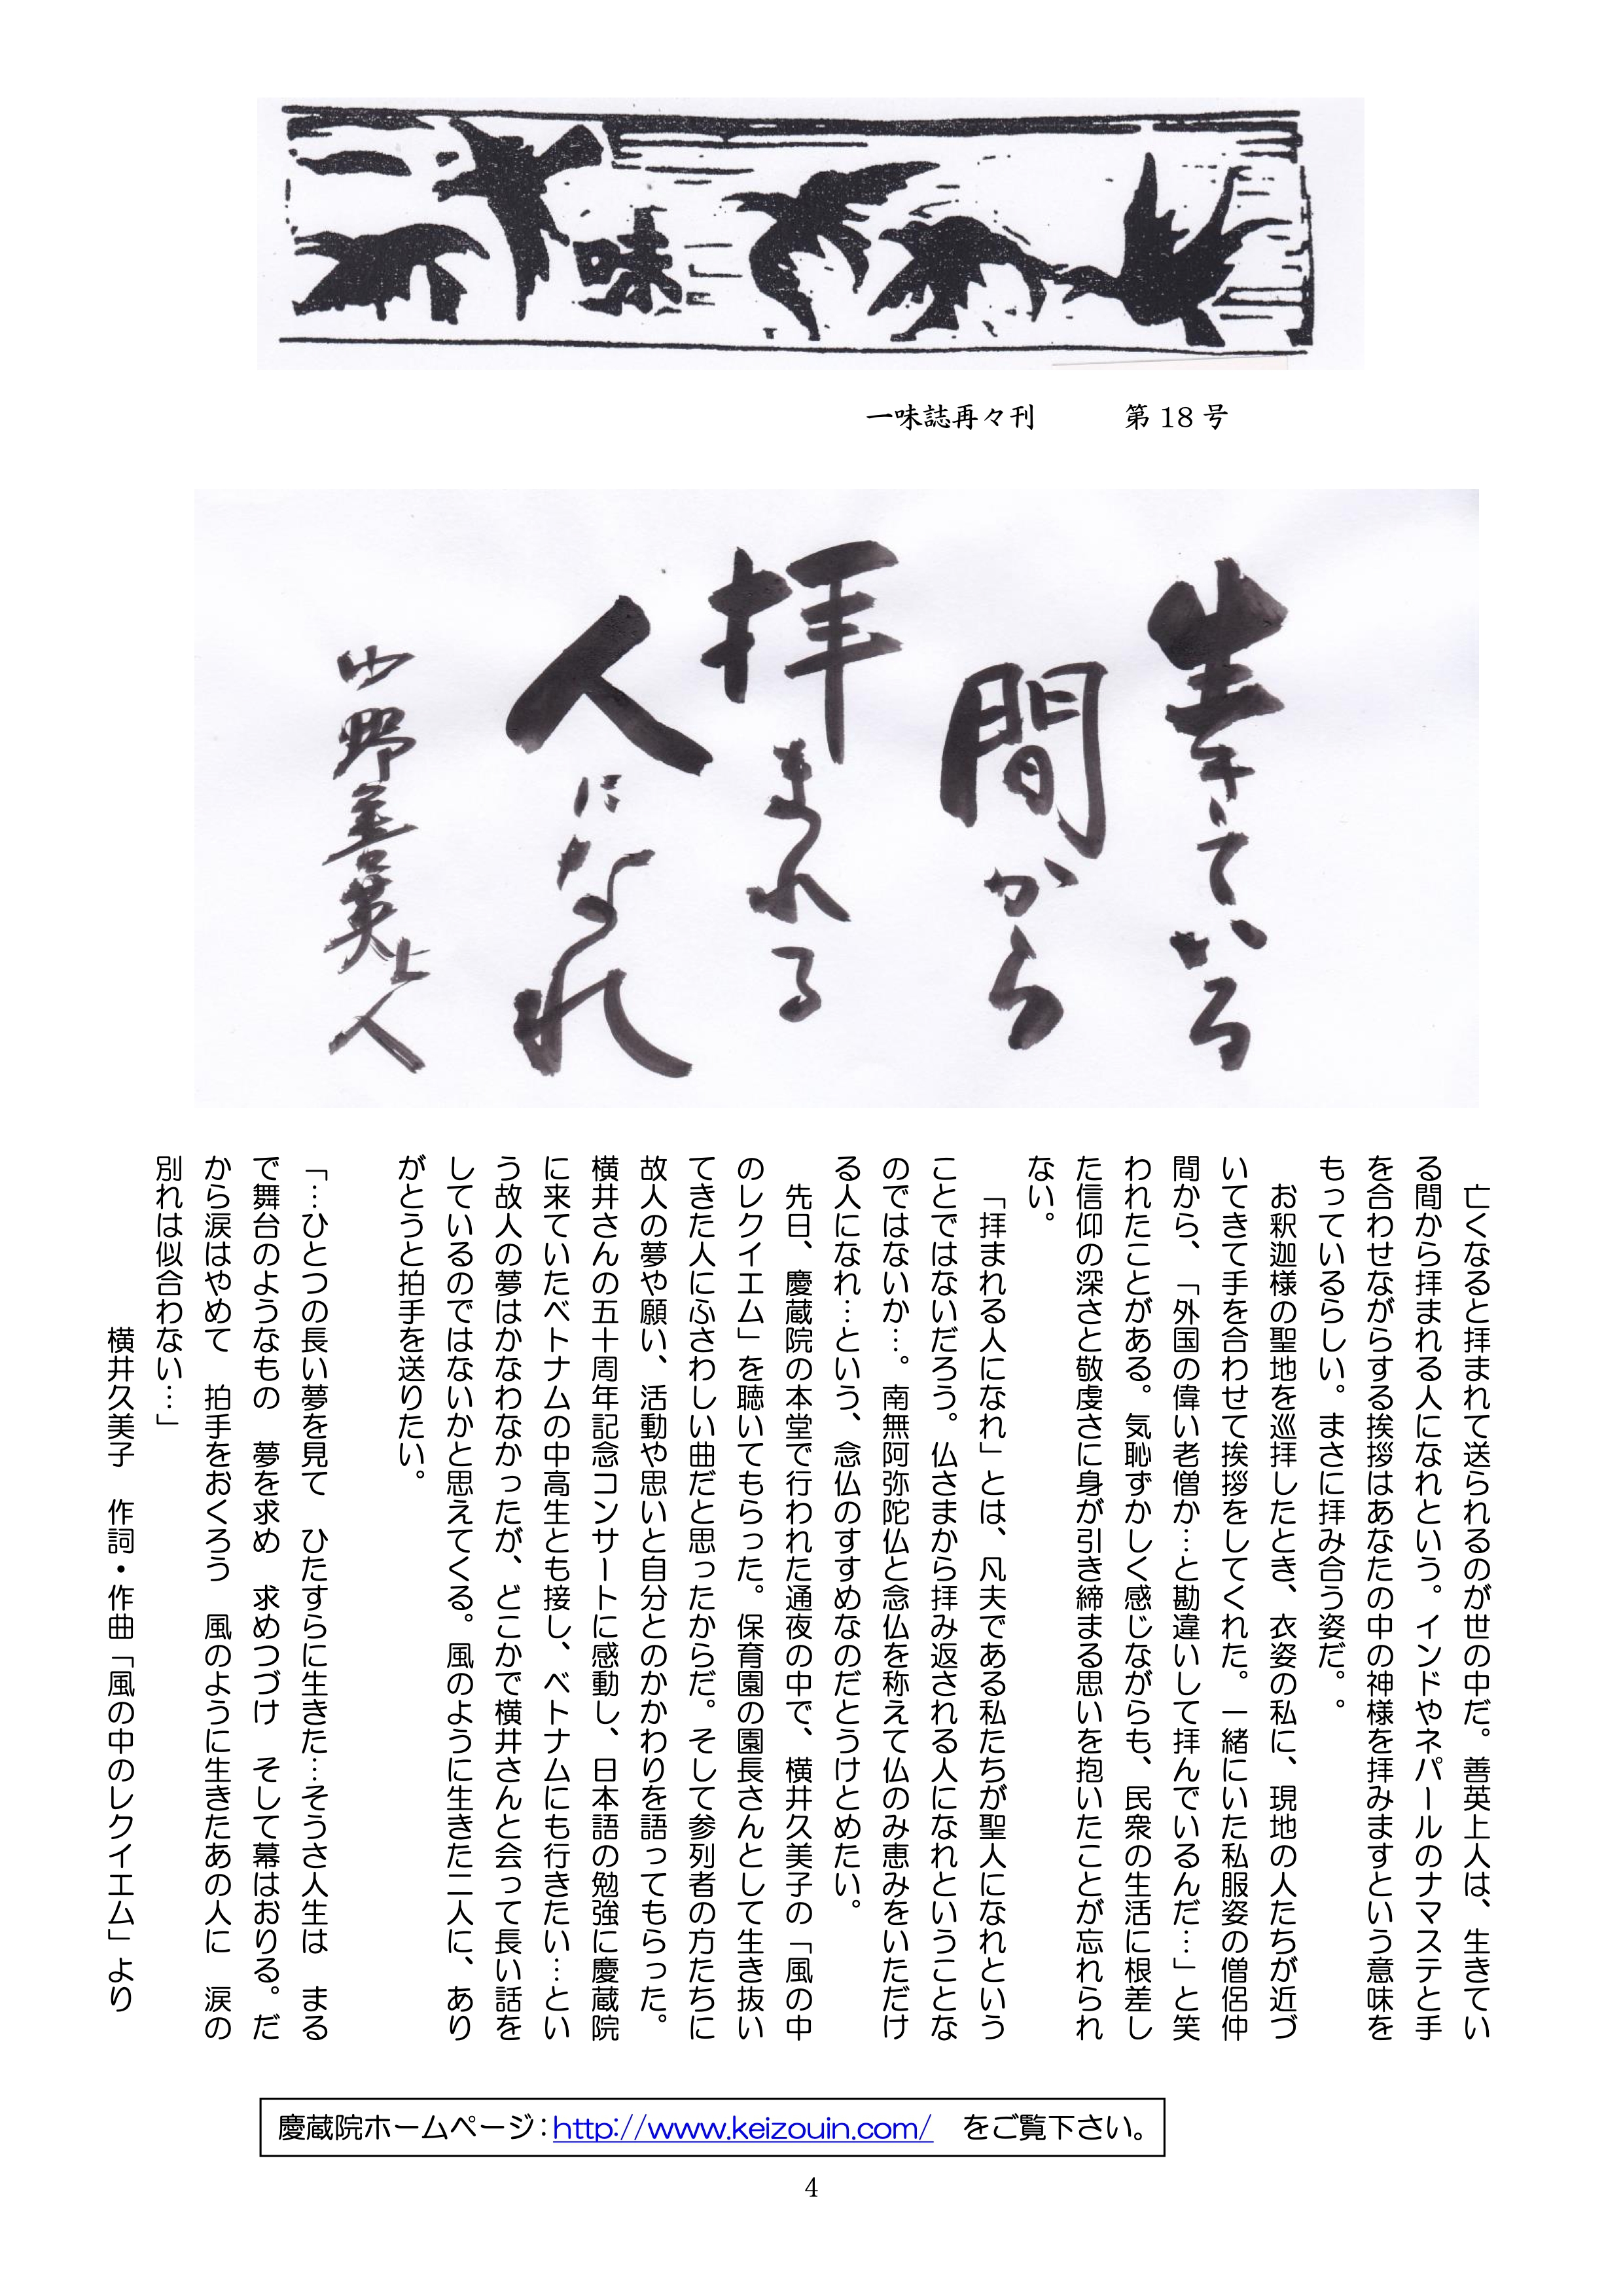 一味
一味誌再々刊　第 18 号
生きている
間から
拝まれる
人になれ
山野善英上人
　亡くなると拝まれて送られるのが世の中だ。善英上人は、生きてい
る間から拝まれる人になれという。インドやネパールのナマステと手
を合わせながらする挨拶はあなたの中の神様を拝みますという意味を
もっているらしい。まさに拝み合う姿だ。。
　お釈迦様の聖地を巡拝したとき、衣姿の私に、現地の人たちが近づ
いてきて手を合わせて挨拶をしてくれた。一緒にいた私服姿の僧侶仲
間から、「外国の偉い老僧か…と勘違いして拝んでいるんだ…」と笑
われたことがある。気恥ずかしく感じながらも、民衆の生活に根差し
た信仰の深さと敬虔さに身が引き締まる思いを抱いたことが忘れられ
ない。
　「拝まれる人になれ」とは、凡夫である私たちが聖人になれという
ことではないだろう。仏さまから拝み返される人になれということな
のではないか…。南無阿弥陀仏と念仏を称えて仏のみ恵みをいただけ
る人になれ…という、念仏のすすめなのだとうけとめたい。
　先日、慶蔵院の本堂で行われた通夜の中で、横井久美子の「風の中
のレクイエム」を聴いてもらった。保育園の園長さんとして生き抜い
てきた人にふさわしい曲だと思ったからだ。そして参列者の方たちに
故人の夢や願い、活動や思いと自分とのかかわりを語ってもらった。
横井さんの五十周年記念コンサートに感動し、日本語の勉強に慶蔵院
に来ていたベトナムの中高生とも接し、ベトナムにも行きたい…とい
う故人の夢はかなわなかったが、どこかで横井さんと会って長い話を
しているのではないかと思えてくる。風のように生きた二人に、あり
がとうと拍手を送りたい。
「…ひとつの長い夢を見て　ひたすらに生きた…そうさ人生は　まる
で舞台のようなもの　夢を求め　求めつづけ　そして幕はおりる。だ
から涙はやめて　拍手をおくろう　風のように生きたあの人に　涙の
別れは似合わない…」
横井久美子　作詞・作曲「風の中のレクイエム」より
慶蔵院ホームページ：http://www.keizouin.com/　をご覧下さい。
4